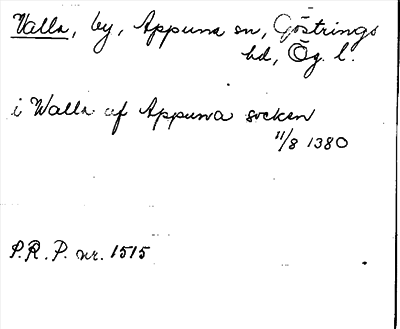 Valla, by, Appuna sn, Göstrings
hd, Ög. l.
i Walla af Appuna socken
11/8 1380
P.R.P. nr. 1515